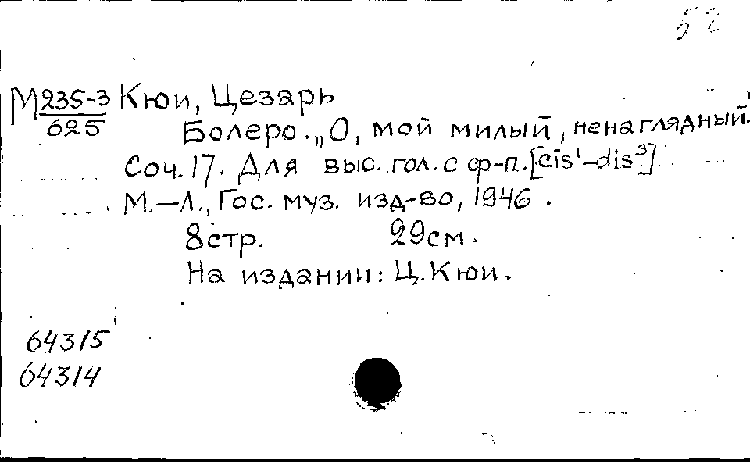 52
М 235-3 Кюи, Цезарь
625
Болеро. „О, мой милый, ненаглядный."
Соч. 17. Для выс. гол. с ф-п. [cis¹-dis³]
М.-Л., Гос. муз. изд-во, 1946.
8 стр. 29 см.
На издании: Ц. Кюи.
64315
64314